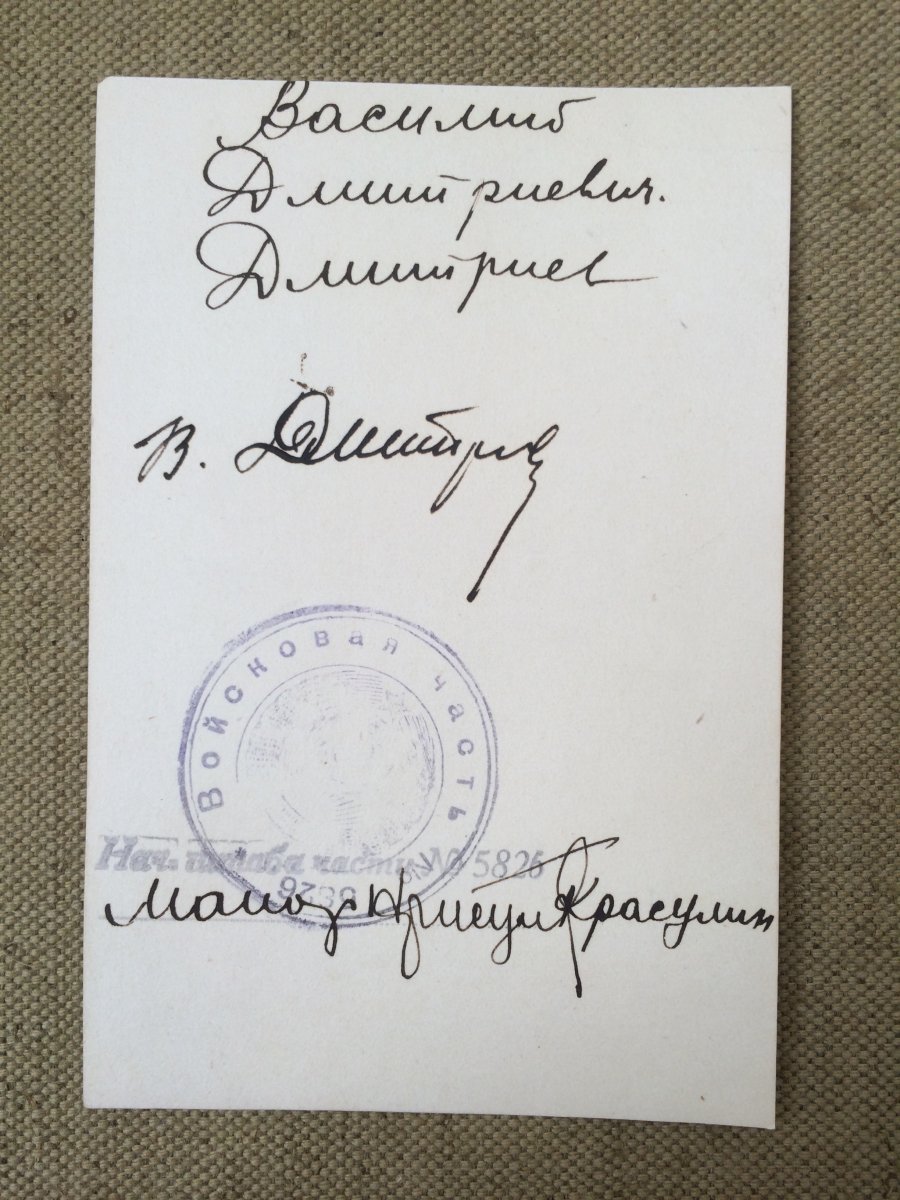 Василий
Дмитриевич.
Дмитриев
В. Дмитриев
Войсковая часть №
Нач. штаба части № 5826
Майор Красулин